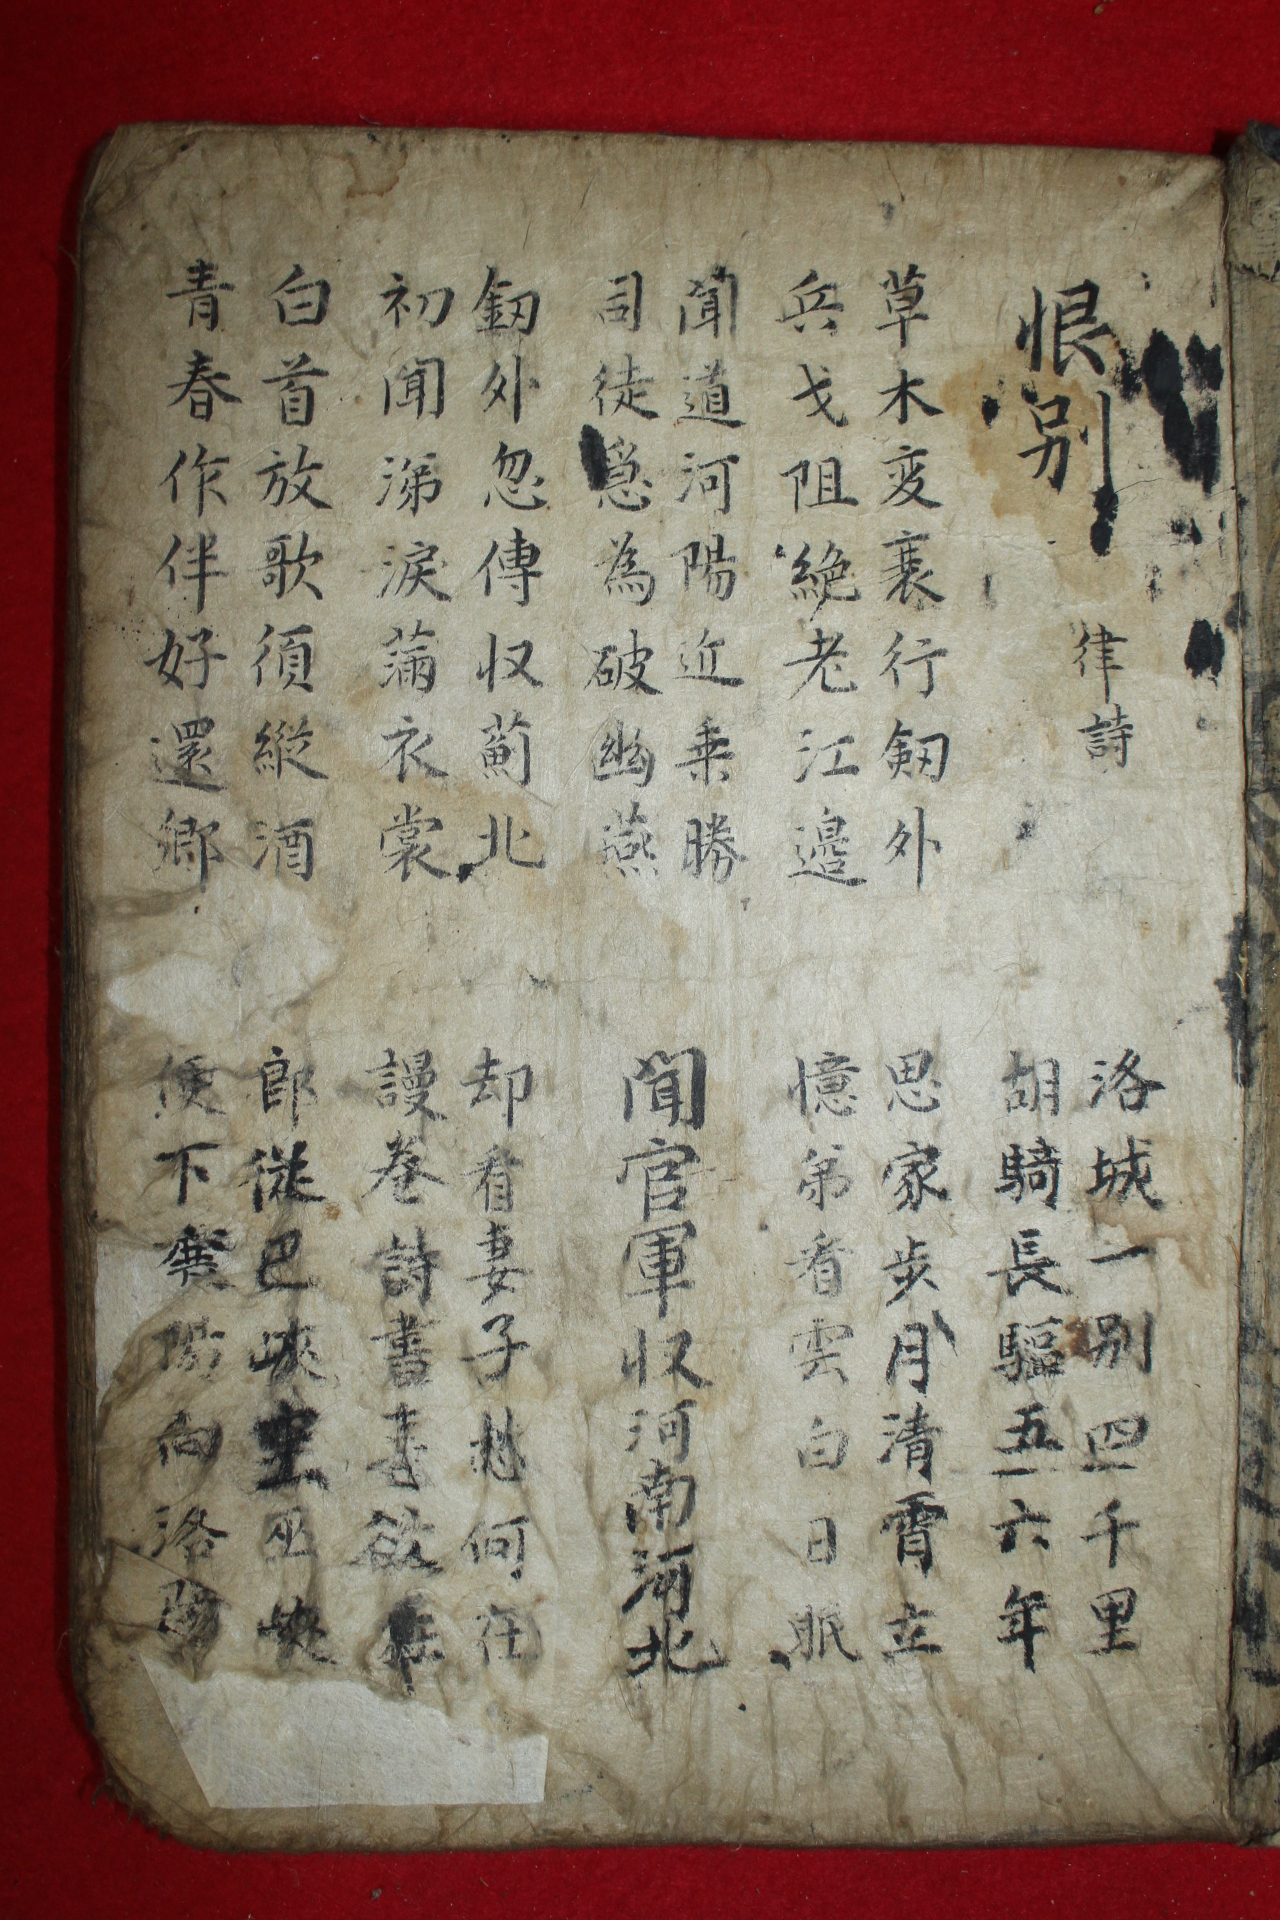 恨別 律詩
洛城一别四千里
胡騎長驅五六年
草木変衰行劒外
兵戈阻絶老江邉
思家步月清霄立
憶弟看雲白日眠
聞道河陽近乗勝
司徒急為破幽燕
聞官軍収河南河北
釼外忽傳収薊北
初聞涕淚滿衣裳
却看妻子愁何在
謾巻詩書喜欲狂
白首放歌須縦酒
青春作伴好還鄉
郎從巴峽巫峽
便下襄陽向洛陽